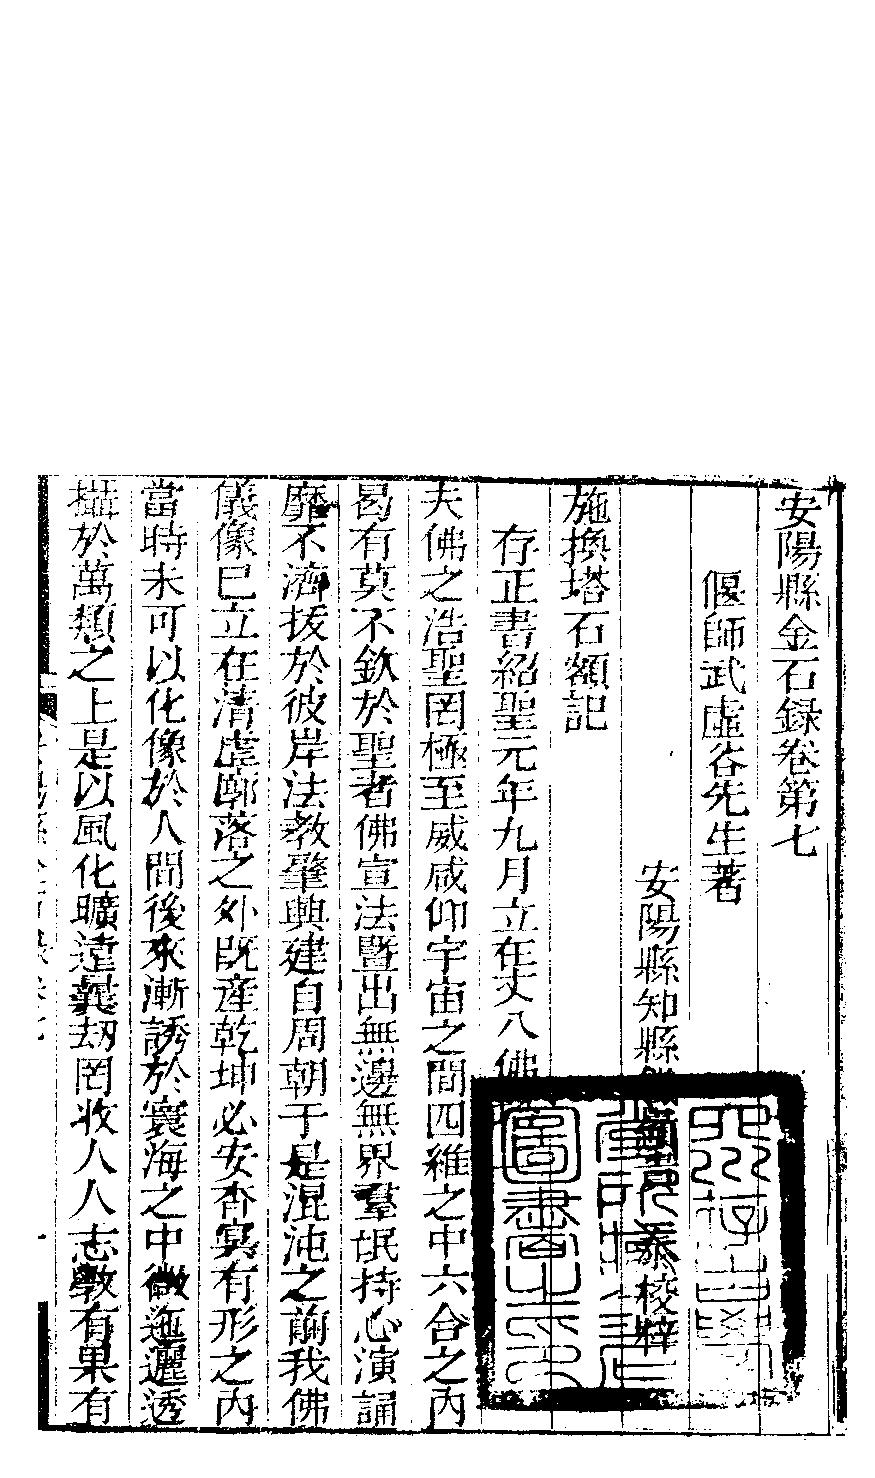 安陽縣金石録卷第七
偃師武虛谷先生著
安陽縣知縣 泰校梓
施換塔石額記
存正書紹聖元年九月立在丈八佛
夫佛之浩聖罔極至威咸仰宇宙之間四維之中六合之內
曷有莫不欽於聖者佛宣法曁出無邊無界羣氓持心演誦
靡不濟拔於彼岸法教肇興建自周朝于是混沌之前我佛
儀像已立在清虛廓落之外旣產乾坤必安杳冥有形之內
當時未可以化像於人間後來漸誘於寰海之中微迤邐透
攝於萬類之上是以風化曠遠曩劫罔收人人志敎有果有